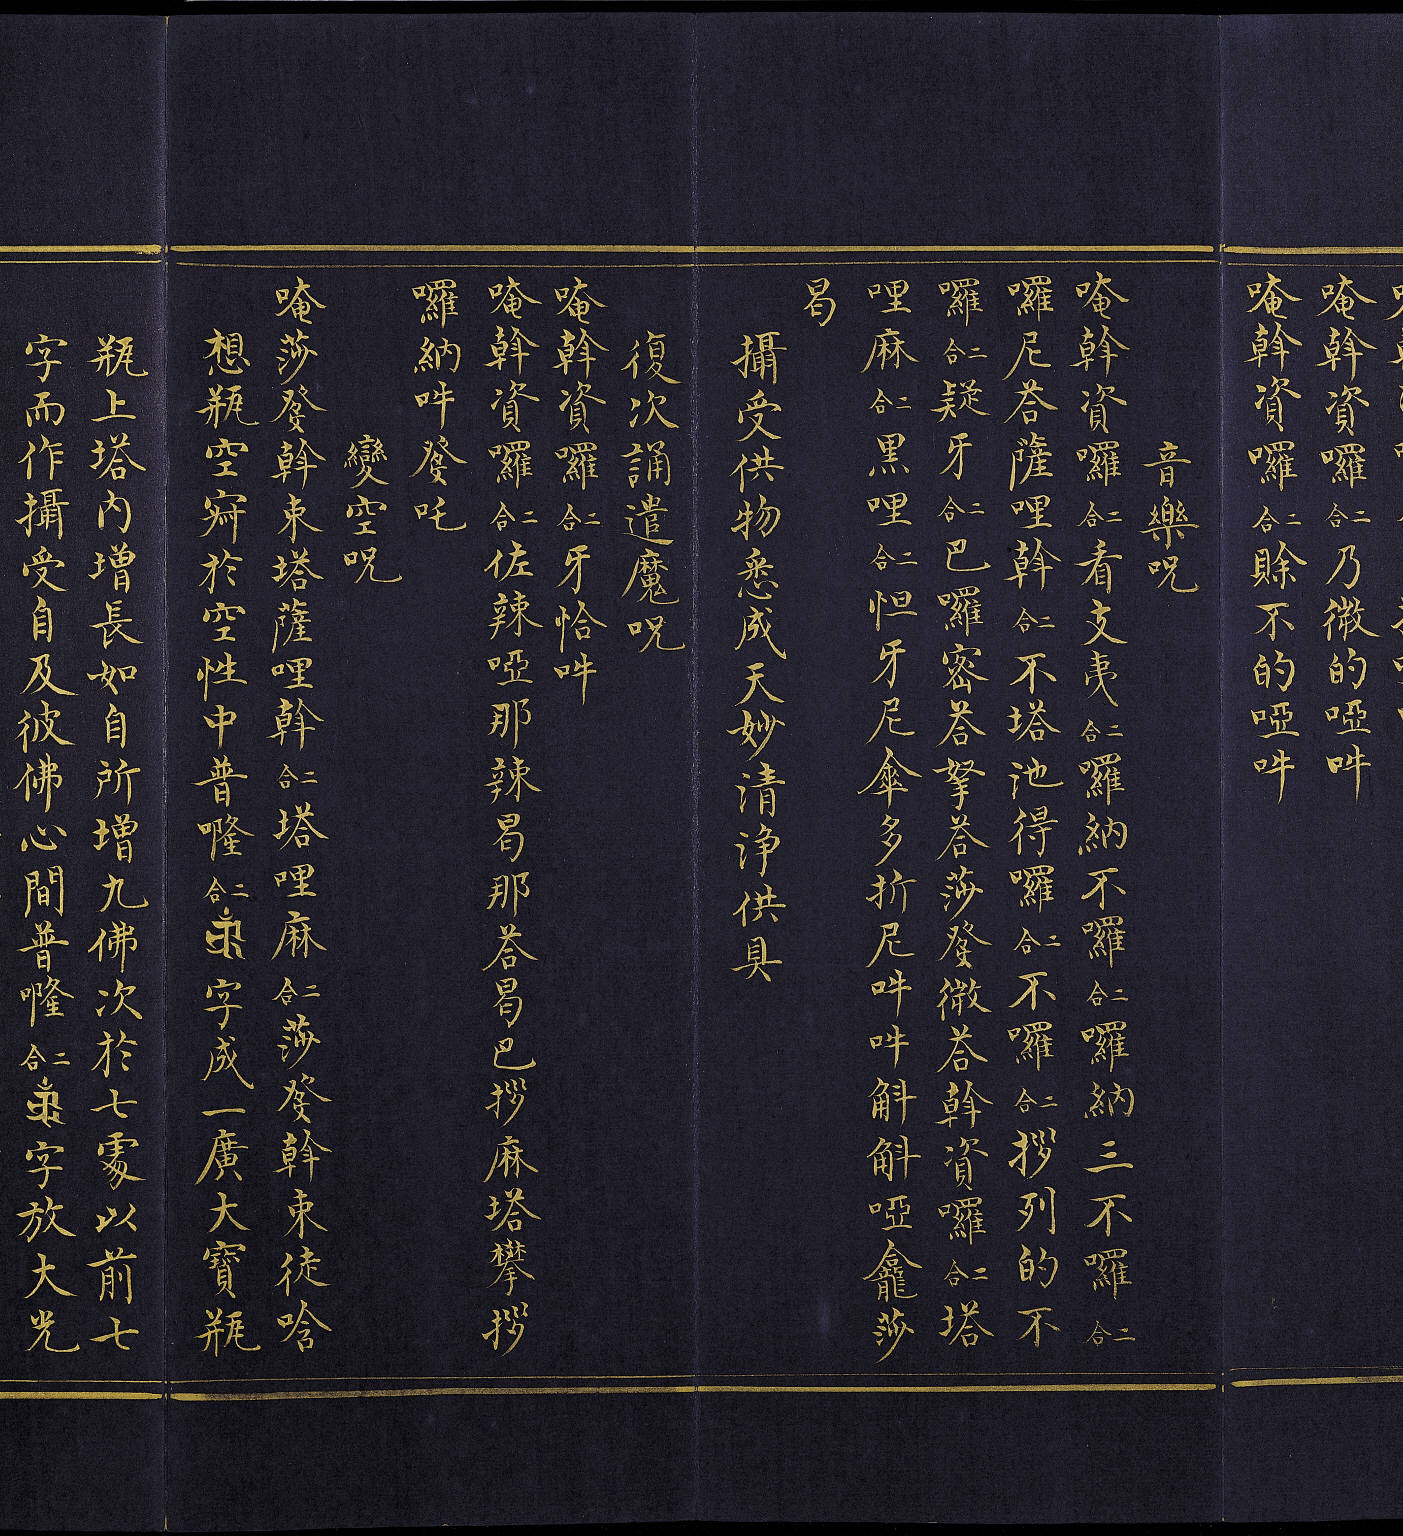 唵斡資囉二合乃微的啞吽
唵斡資囉二合賒不的啞吽
音樂呪
唵斡資囉二合看支夷二合囉納不囉二合囉納三不囉二合
囉尼荅薩哩斡二合不塔池得囉二合不囉二合拶列的不
囉二合疑牙二合巴囉密荅拏荅莎發微荅斡資囉二合塔
哩麻二合黑哩二合怛牙尼傘多折尼吽吽斛斛啞龕莎
曷
攝受供物悉成天妙清淨供具
復次誦遣魔呪
唵斡資囉二合牙恰吽
唵斡資囉二合佐辣啞那辣曷那荅曷巴拶麻塔攀拶
囉納吽發吒
變空呪
唵莎發斡束塔薩哩斡二合塔哩麻二合莎發斡束徒唅
想瓶空寂於空性中普嚨二合字成一廣大寶瓶
瓶上塔内增長如自所增九佛次於七處以前七
字而作攝受自及彼佛心間普嚨二合字放大光